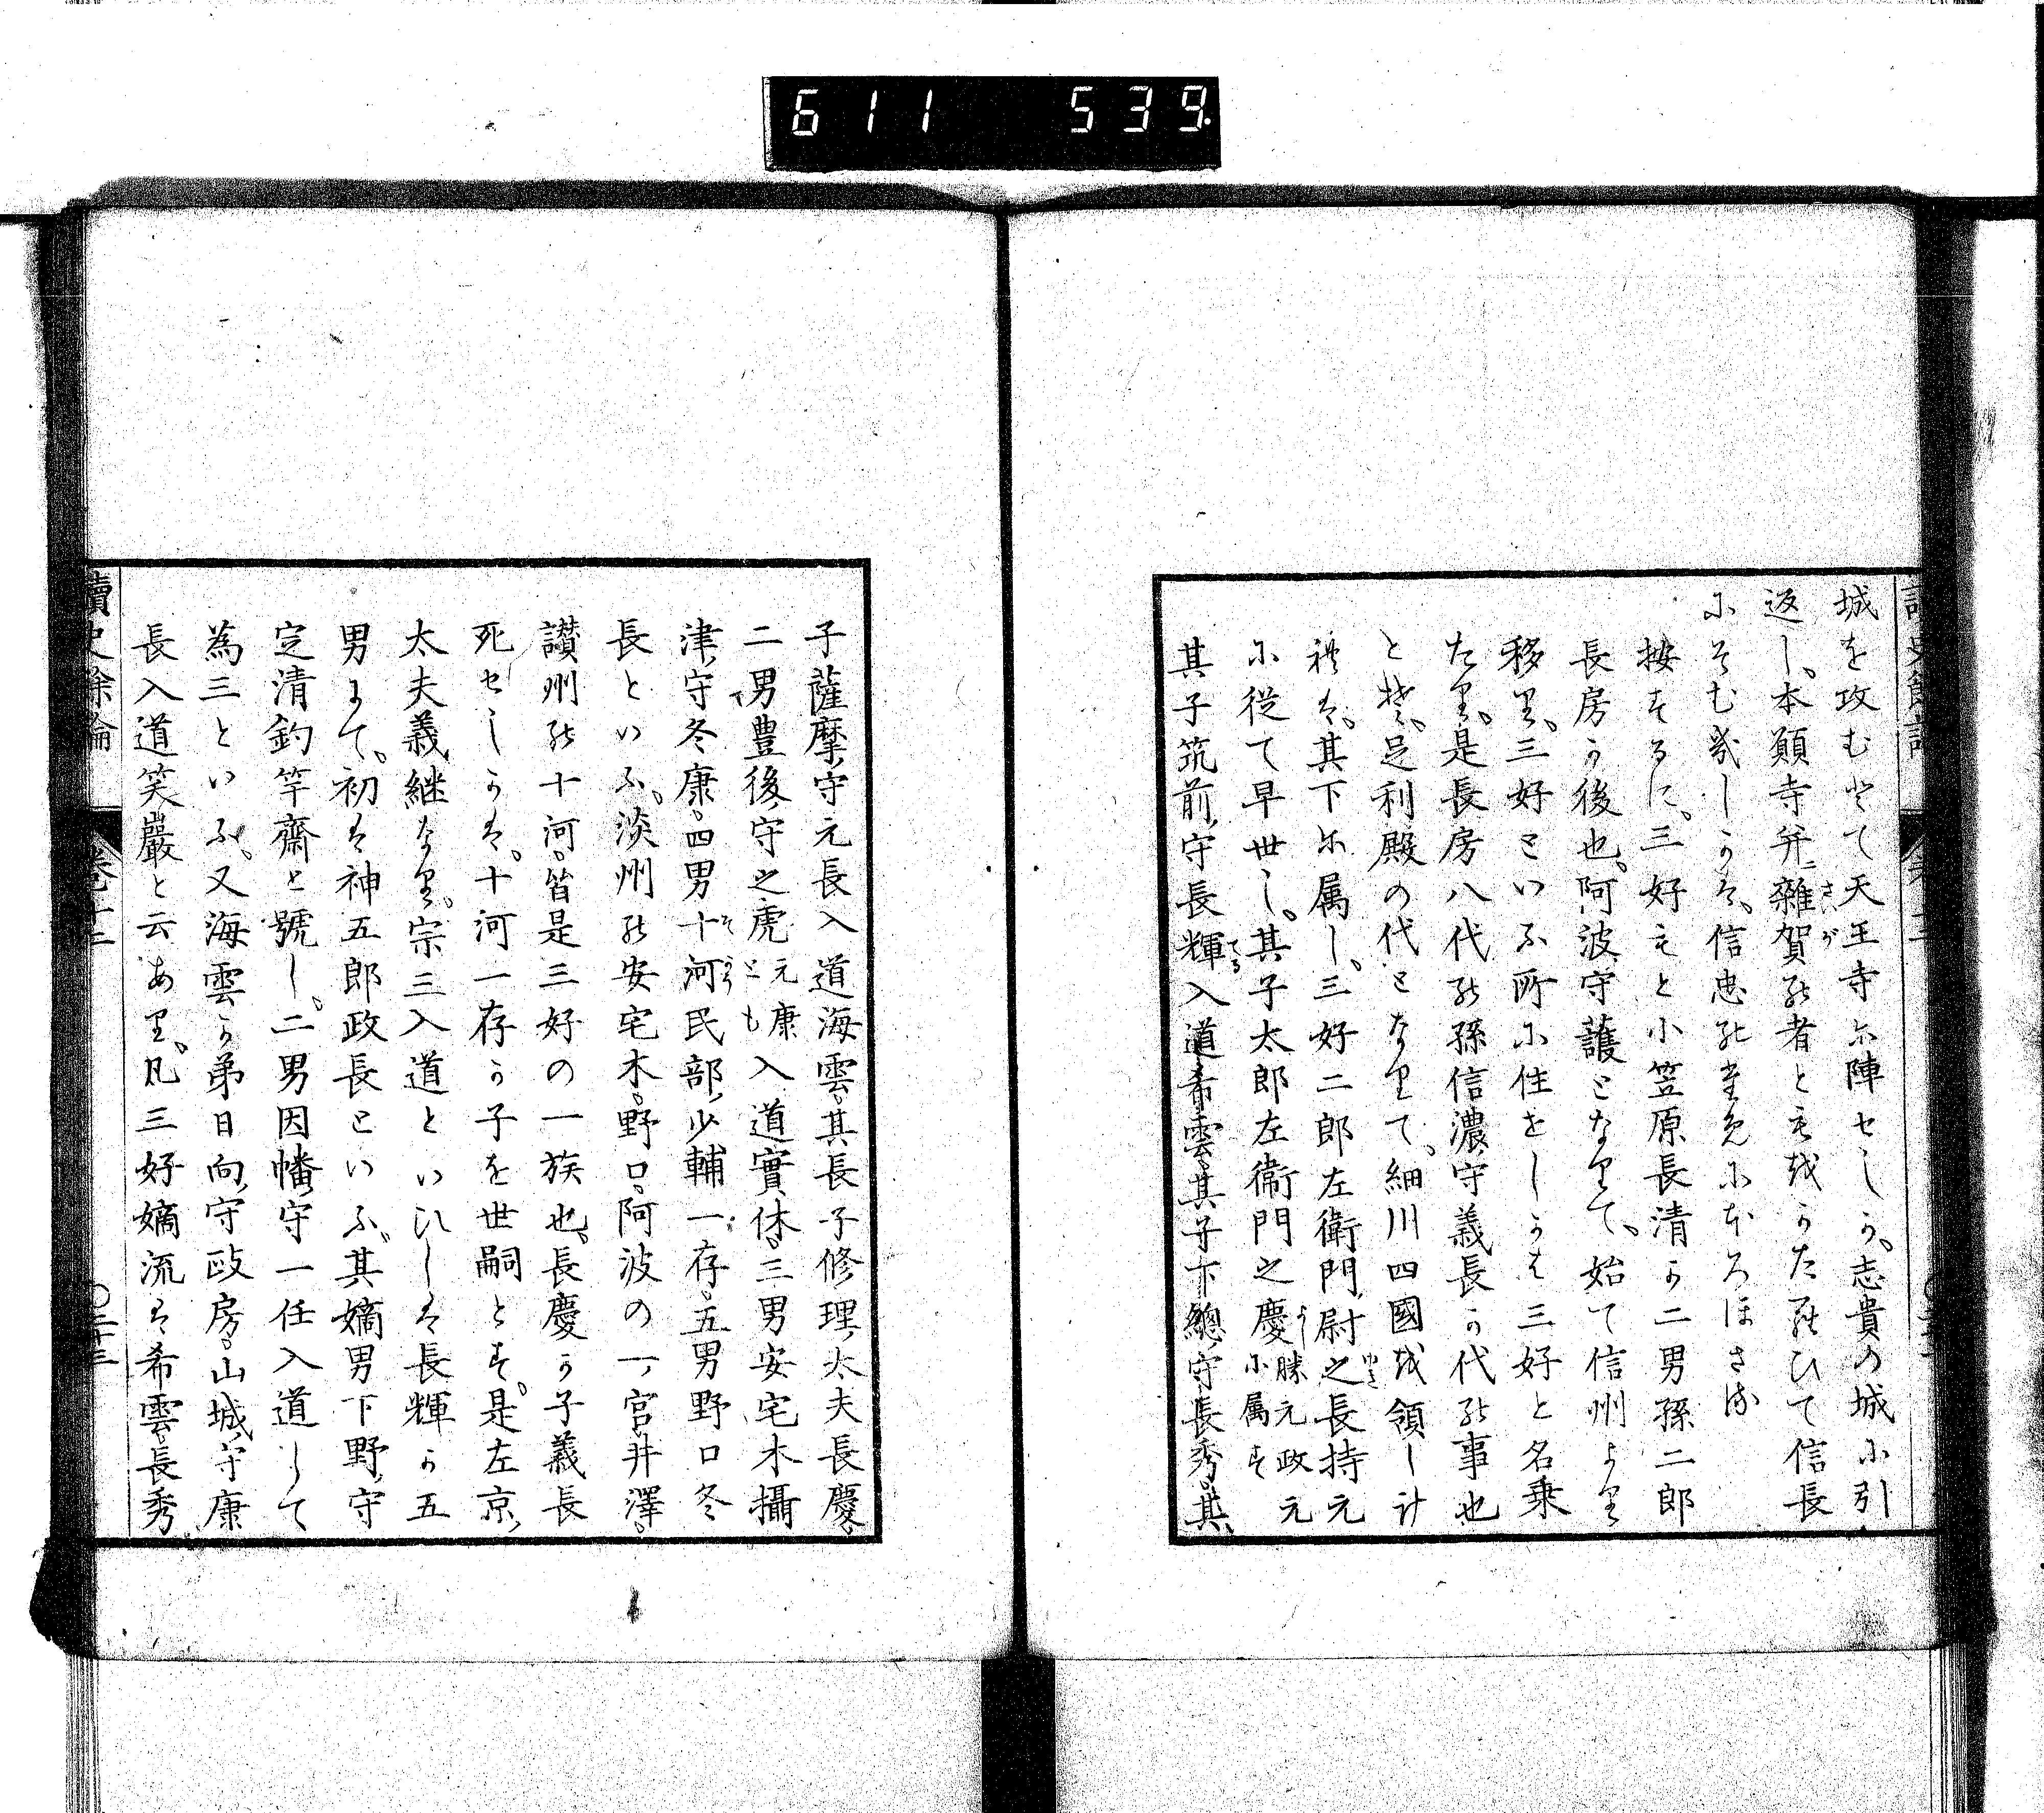 611 539.
城を攻むとて天王寺に陣せしか、志貴の城に引
返し、本願寺并ニ雜賀の者とも越かたらひて信長
にそむきしかは、信忠の為にほろほさる
按するに、三好もと小笠原長清か二男孫二郎
長房か後也、阿波守護となりて、始て信州より
移り、三好といふ所に住をしかは三好と名乗
たり、是長房八代の孫信濃守義長か代の事也
とそ、足利殿の代となりて、細川四國を領し計
れは、其下に属し、三好二郎左衛門尉之長持元
に従て早世し、其子太郎左衛門之慶勝元政元に属す
其子筑前守長輝入道希雲、其子下總守長秀、其
子薩摩守元長入道海雲、其長子修理太夫長慶、
二男豊後守之虎元康とも入道實休、三男安宅木攝
津守冬康、四男十河民部少輔一存、五男野口冬
長といふ、淡州の安宅木、野口、阿波の一宮、井澤、
讃州の十河、皆是三好の一族也、長慶か子義長
死せしかは、十河一存か子を世嗣とす、是左京
太夫義継なり、宗三入道といひしは長輝か五
男にて、初は神五郎政長といふ、其嫡男下野守
定清釣竿齋と號し、二男因幡守一任入道して
為三といふ、又海雲か弟日向守政房、山城守康
長入道笑巖と云あり、凡三好嫡流は希雲、長秀
讀史餘論 卷十二 〇三十三